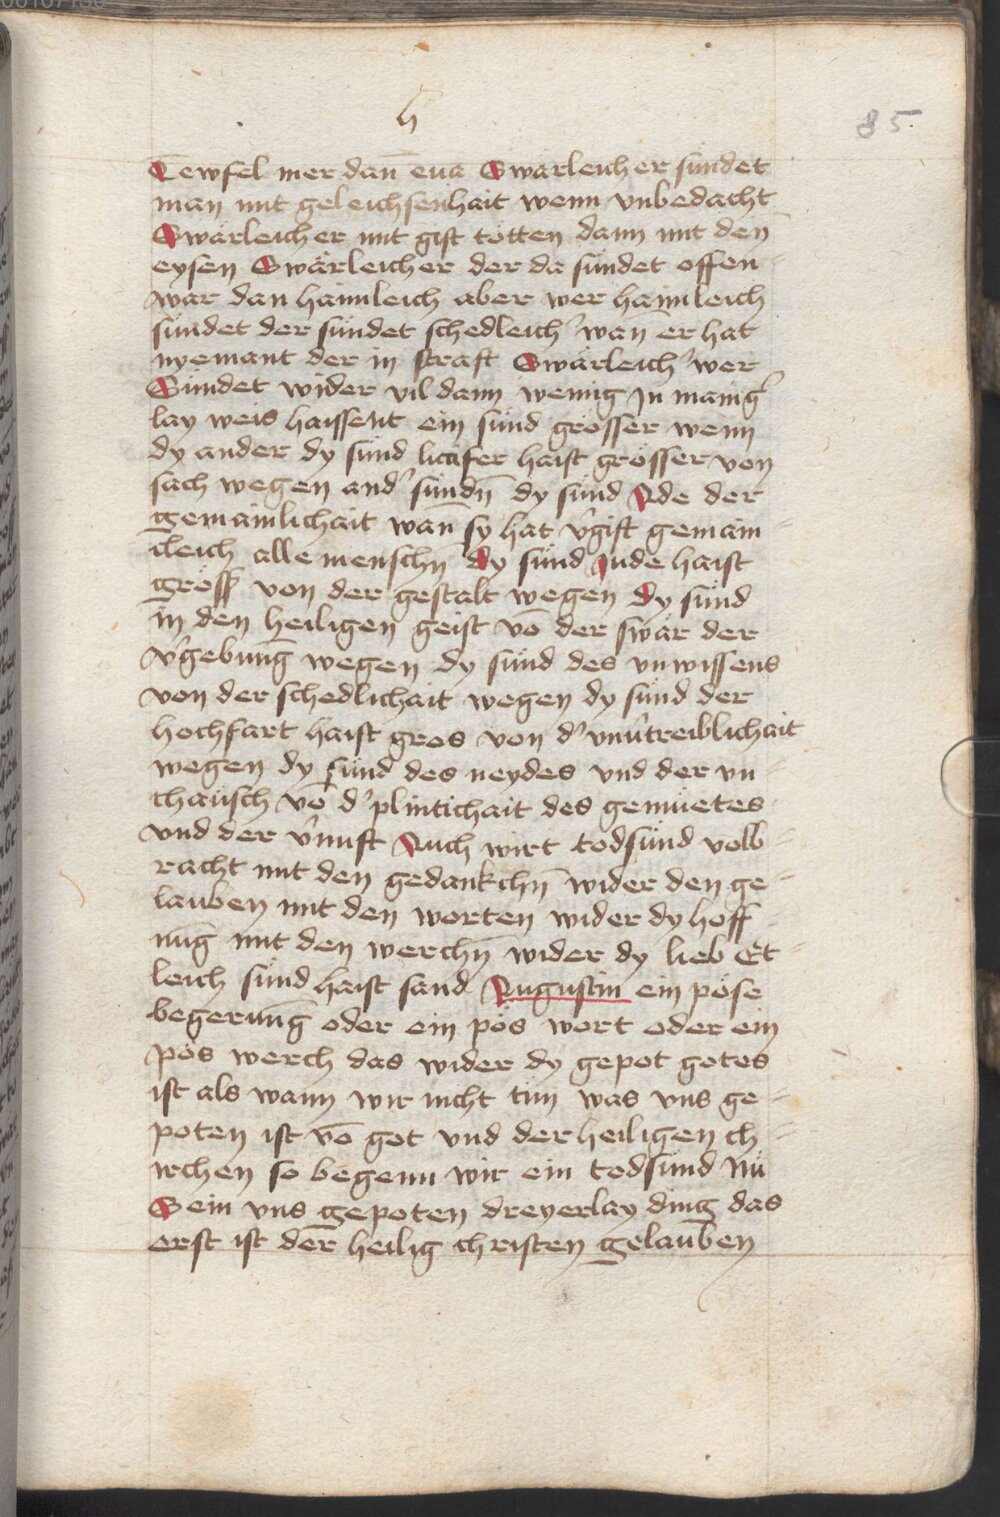 h
85.
Tewfel mer dan̄ eua Swärleicher sündet
man mit geleichsenhait wenn vnbedacht
Swärleicher mit gift tötten dann mit den
eysen Swärleicher der da sündet offen
war dan haimleich aber wer haimleich
sündet der sündet schedleich͛ wan er hat
nyemant der in straft Swärleich͛ wer
Sündet wider vil dann wenig In manig͛
lay weis haissent ein sünd grösser wenn
dy ander dy sünd lucifer haist grösser von
sach wegen and͛ sündn̄ dy sünd Ade der
gemainlichait wan sy hat v͛gift gemain
ileich alle menschn̄ dy sünd Jude haist
gröss von der gestalt wegen dy sünd
in den heiligen geist vō der swär der
v͛gebung wegen dy sünd des vnwissens
von der schedlichait wegen dy sünd der
hochfart haist gros von d͛ vnv͛treiblichait
wegen dy sünd des neydes vnd der vn
chäusch vō d͛ plintichait des gemüetes
vnd der v͛nunft Auch wirt todsünd volb
racht mit den gedankchn̄ wider den ge
lauben mit den worten wider dy hoff
nūg mit den werchn̄ wider dy lieb Et
leich sünd haist sand Augustin ein pöse
begerung oder ein pös wort oder ein
pös werch das wider dy gepot gotes
ist als wann wir nicht tun was vns ge
poten ist vō got vnd der heiligen ch
irchen so begenn wir ein todsünd Nu
Sein vns gepoten dreyerlay ding das
erst ist der heilig christen gelauben